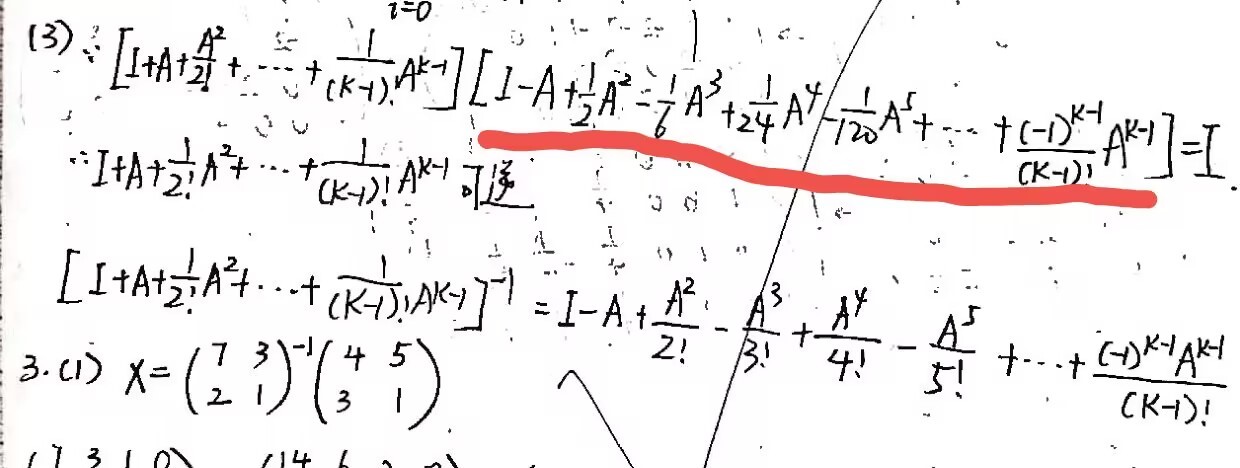 i=0
(3) ∵ [I+A+A²/2!+⋯+1/(K-1)! A^{K-1}][I-A+1/2 A²-1/6 A³+1/24 A⁴-1/120 A⁵+⋯+(-1)^{K-1}/(K-1)! A^{K-1}]=I.
∴ I+A+1/2! A²+⋯+1/(K-1)! A^{K-1} 可逆
[I+A+1/2! A²+⋯+1/(K-1)! A^{K-1}]^{-1} = I-A+A²/2!-A³/3!+A⁴/4!-A⁵/5!+⋯+(-1)^{K-1}A^{K-1}/(K-1)!
3.(1) X=(7 3; 2 1)^{-1}(4 5; 3 1)